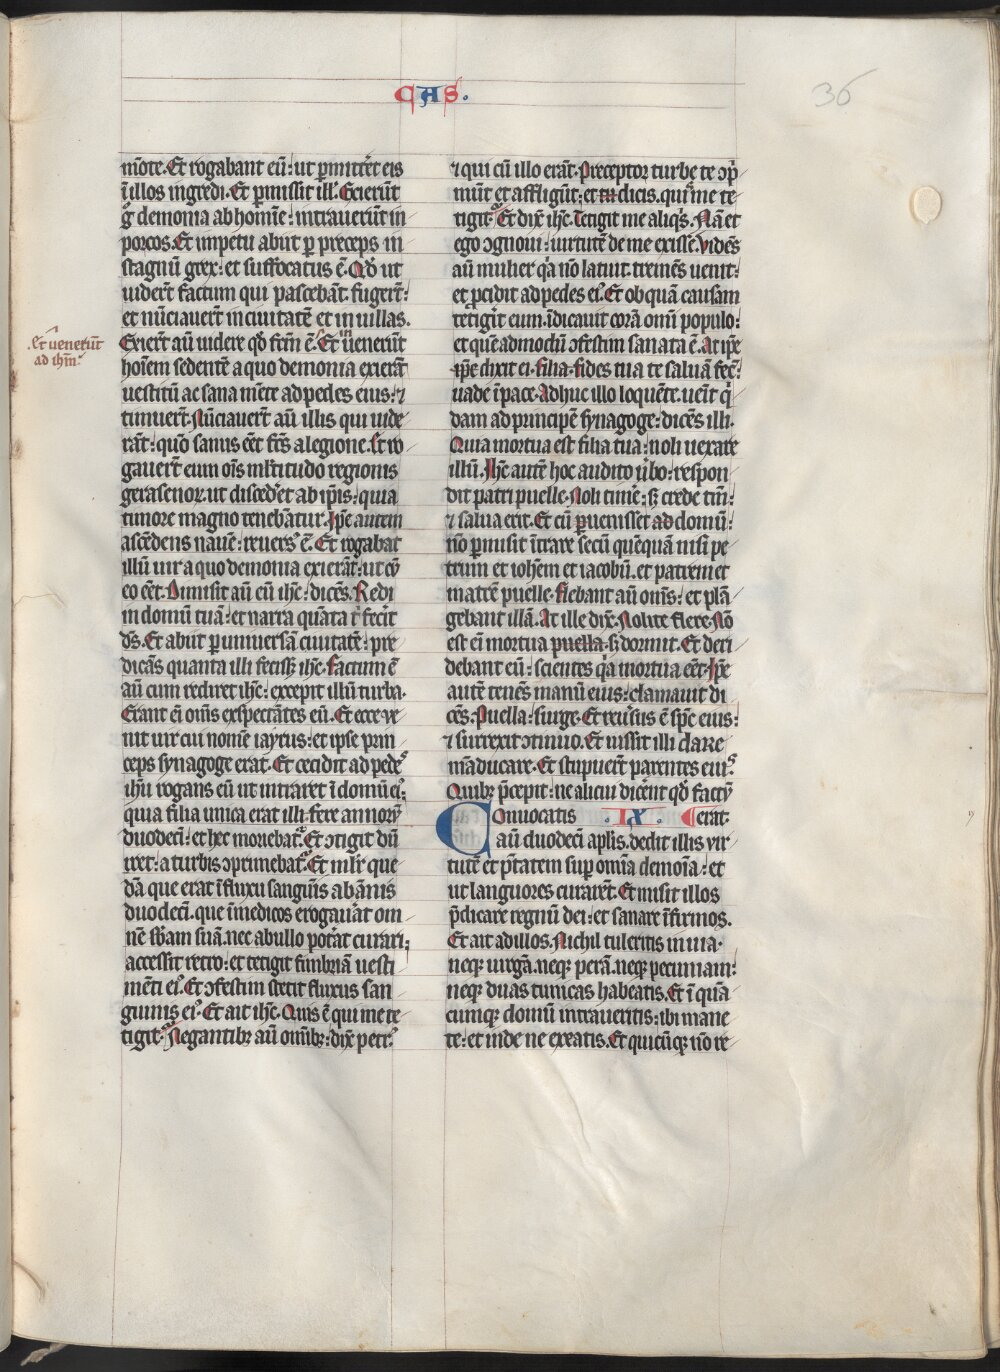 CAS.
36
mõte. Et rogabant eũ: ut ꝑmitt̃et eis
ĩ illos ingredi. Et ꝑmissit ill̃. Exierũt
g̃ demonia ab homĩe: intrauerũt in
porcos. Et impetu abiit ꝑ preceps in
stagnũ grex: et suffocatus ẽ. Qđ ut
uidert̃ factum qui pascebãt. fugert̃:
et nũciauert̃ in ciuitatẽ et in uillas.
Exiert̃ aũ uidere qđ fctm̃ ẽ. Et uenerũt
.et uenerũt
ad ihm̃.
hoĩem sedentẽ a quo demonia exierãt
uestitũ ac sana mẽte ad pedes eius: ⁊
timuert̃. Nũciauert̃ aũ illis qui uide
rãt: quõ sanus eẽt fc̃s a legione. Et ro
gauert̃ eum oĩs ml̃titudo regionis
gerasenoꝝ. ut disced̃et ab ip̃is: quia
timore magno tenebãtur. Ip̃e autem
ascẽdens nauẽ: reuersꝰ ẽ. Et rogabat
illũ uir a quo demonia exierãt: ut cũ
eo eẽt. Dimisit aũ eũ ihc̃: dicẽs. Redi
in domũ tuã: et narra quãta t̃ fecit
ds̃. Et abiit ꝑ uniuersã ciuitatẽ: pre
dicãs quanta illi fecisset ihc̃. Factum ẽ
aũ cum rediret ihc̃: excepit illũ turba.
Erant eĩ om̃s exspectãtes eũ. Et ecce ve
nit uir cui nomẽ iayrus: et ipse prin
ceps synagoge erat. Et cecidit ad pedeˢ
ihũ rogans eũ ut intraret ĩ domũ eiꝰ:
quia filia unica erat illi fere annoꝝ
duodeci: et hec moriebat̃. Et ↄtigit dũ
iret: a turbis ↄprimebat̃. Et ml̃r que
dã que erat ĩ fluxu sanguĩs ab ãnis
duodeci. que ĩ medicos erogauãt om
nẽ sb̃am suã. nec ab ullo pot̃at curari:
accessit retro: et tetigit fimbriã uesti
mẽti eiꝰ. Et ↄfestim stetit fluxus san
guinis eiꝰ. Et ait ihc̃. Quis ẽ qui me te
tigit. Negantibꝫ aũ om̃ibꝫ: dix̃ petrꝰ
⁊ qui cũ illo erãt. Preceptor turbe te ↄp̃
mũt et affligũt: et tu dicis. quis me te
tigit. Et dix̃ ihc̃. Tetigit me aliqˢ. Nã et
ego ↄgnoui: uirtutẽ de me exisse. Vidẽs
aũ mulier qa nõ latuit. tremẽs uenit:
et ꝓcidit ad pedes eiꝰ. Et ob quã causam
tetigit̃ eum. ĩdicauit corã om̃i populo:
et quẽadmodũ ↄfestim sanata ẽ. At ip̃e
ip̃e dixit ei. filia. fides tua te saluã fec̃:
uade ĩ pace. Adhuc illo loquẽte. ueĩt q̃
dam ad principẽ synagoge: dicẽs illi.
Quia mortua est filia tua: noli uexare
illũ. Ihc̃ autẽ hoc audito u̾bo: respon
dit patri puelle. Noli timẽ: sꝫ crede tm̃:
⁊ salua erit. Et cũ ꝑuenisset ad domũ:
nõ ꝑmisit ĩtrare secũ quẽquã nisi pe
trum et iohẽm et iacobũ. et patrem et
matrẽ puelle. Flebant aũ om̃s: et plã
gebant illã. At ille dix̃. Nolite flere. Nõ
est eĩ mortua puella sꝫ dormit. Et deri
debant eũ: scientes qa mortua eẽt. Ip̃e
autẽ tenẽs manũ eius: clamauit di
cẽs. Puella: surge. Et reu̾sus ẽ sp̃c eius:
⁊ surrexit ↄtinuo. Et iussit illi dare
mãducare. Et stupuert̃ parentes eiuˢ.
Quibꝫ p̃cepit: ne alicui dicẽnt qđ factũ
Conuocatis .IX. erat.
aũ duodeci aplis. dedit illis vir
tutẽ et p̃tatem suꝑ omĩa demoĩa: et
ut languores curarẽt. Et misit illos
p̃dicare regnũ dei: et sanare ĩfirmos.
Et ait ad illos. Nichil tuleritis in uia.
neqꝫ uirgã. neqꝫ perã. neqꝫ pecuniam:
neqꝫ duas tunicas habeatis. Et ĩ quã
cumqꝫ domũ intraueritis: ibi mane
te: et inde ne exeatis. Et quicũqꝫ nõ re